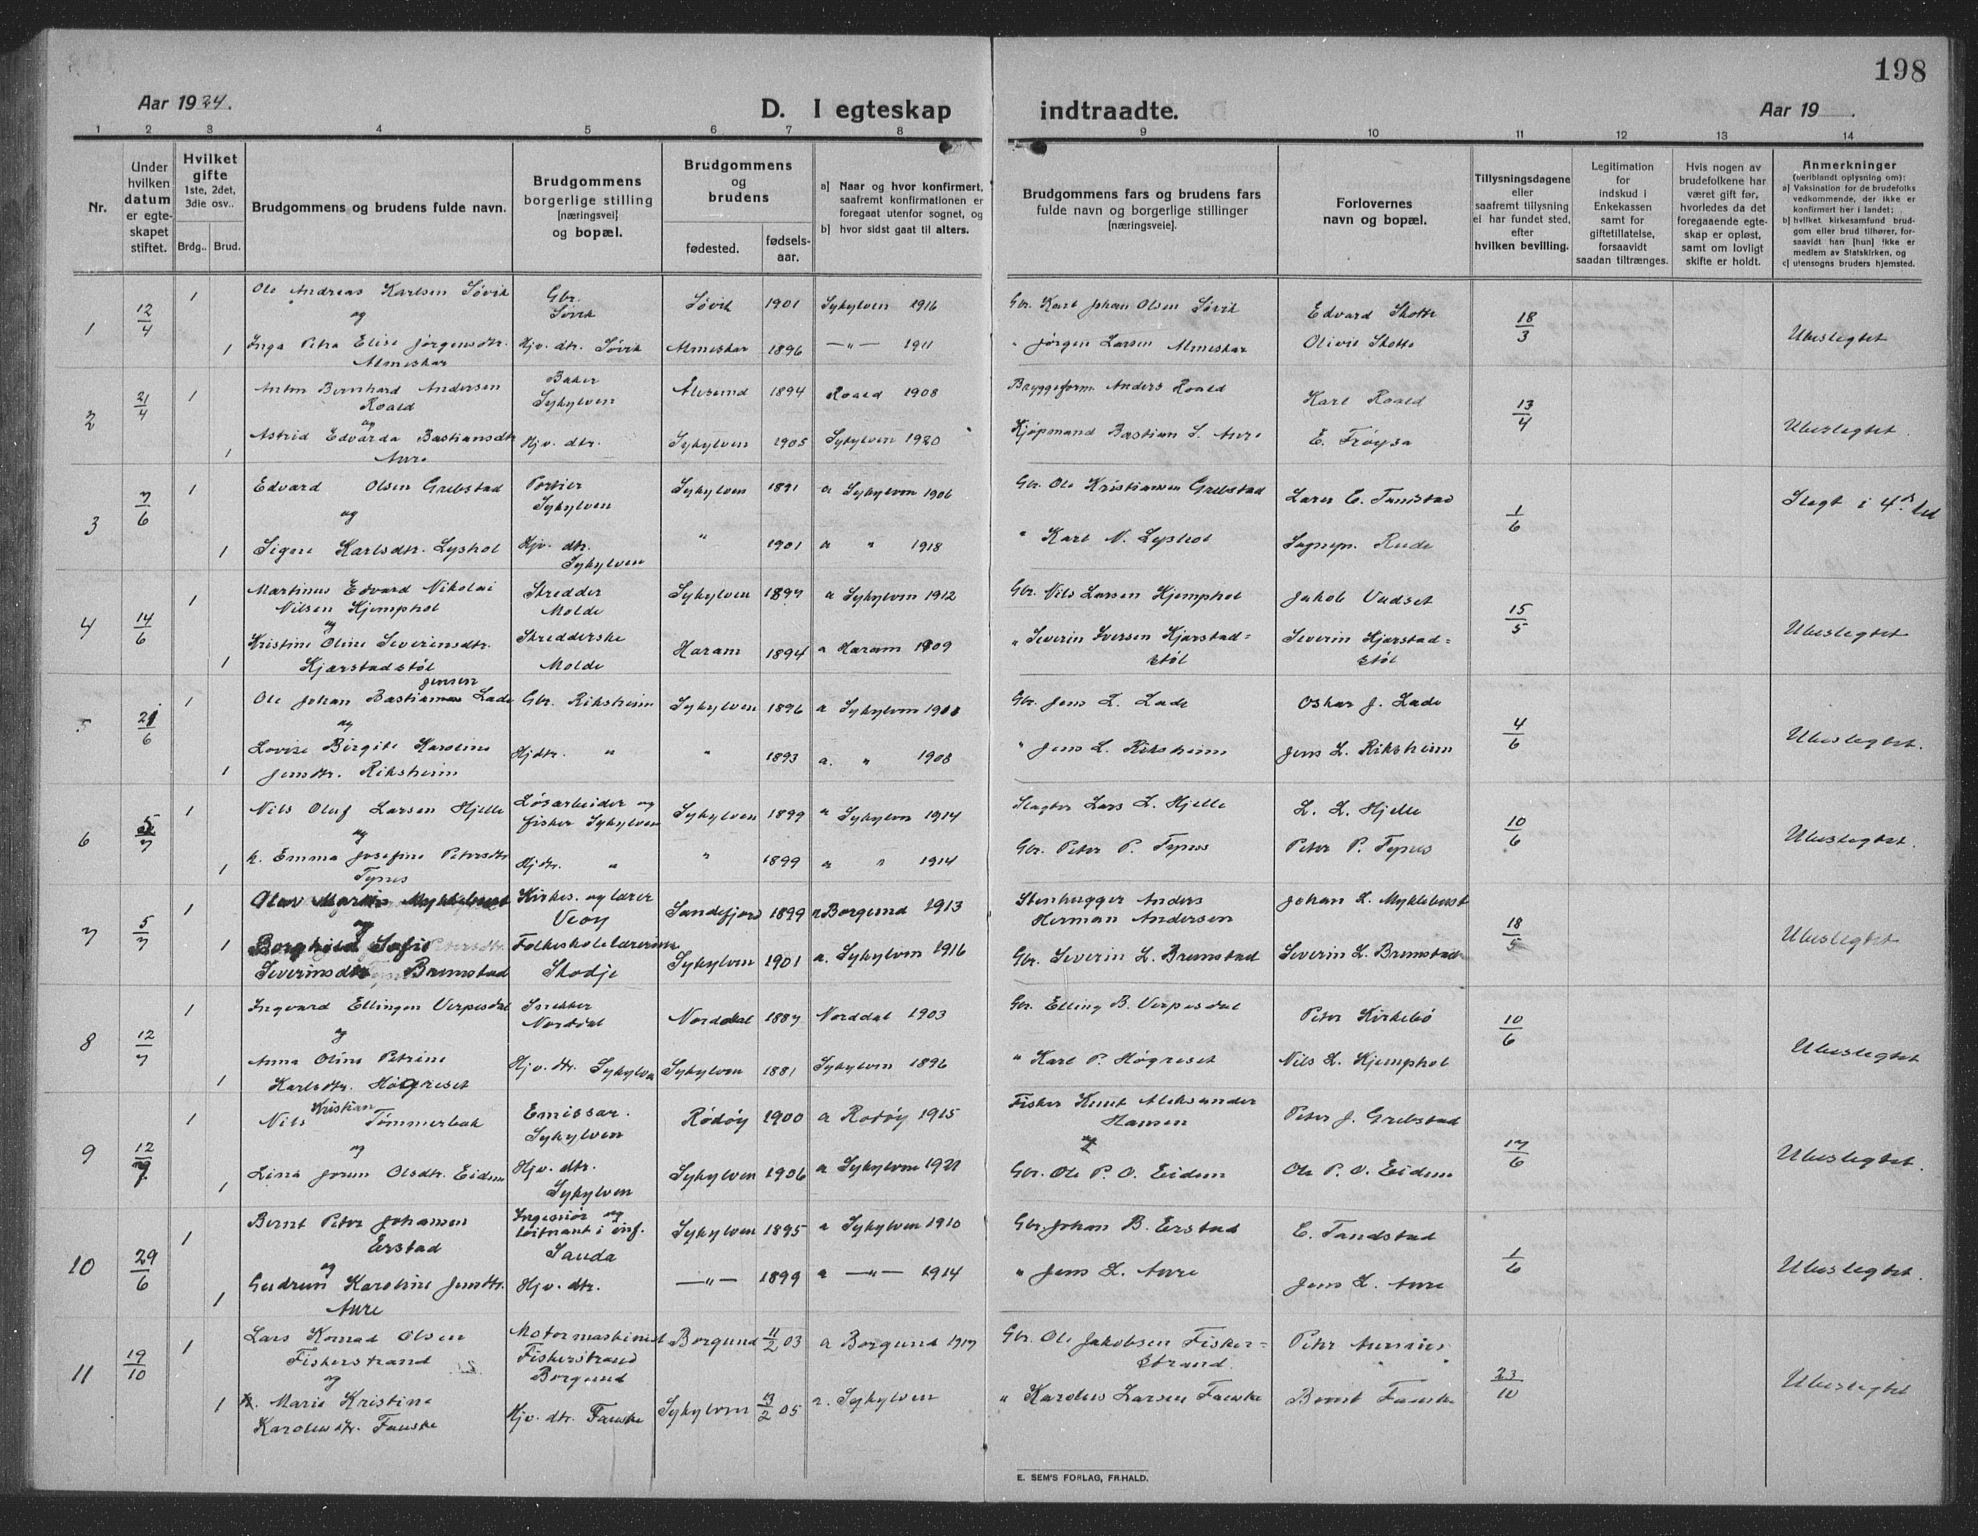 198
Aar 1924.
D. I egteskap indtraadte.
Aar 19
1 2 3 4 5 6 7 8 9 10 11 12 13 14
Nr.
Under hvilken datum er egte-skapet stiftet.
Hvilket gifte 1ste, 2det, 3die osv..
Brdg.. Brud.
Brudgommens og brudens fulde navn.
Brudgommens borgerlige stilling [næringsvei] og bopæl.
Brudgommens og brudens
fødested. fødsels-aar.
a] Naar og hvor konfirmert, saafremt konfirmationen er foregaat utenfor sognet, og
b] hvor sidst gaat til alters.
Brudgommens fars og brudens fars fulde navn og borgerlige stillinger [næringsveie].
Forlovernes navn og bopæl.
Tillysningsdagene eller saafremt tillysning ei har fundet sted, efter hvilken bevilling.
Legitimation for indskud i Enkekassen samt for giftetillatelse, forsaavidt saadan tiltrænges.
Hvis nogen av brudefolkene har været gift før, hvorledes da det foregaaende egte-skap er opløst, samt om lovligt skifte er holdt.
Anmerkninger
(heriblandt oplysning om):
a] Vaksination for de brudefolks vedkommende, der ikke er konfirmert her i landet;
b] hvilket kirkesamfund brud-gom eller brud tilhører, for-saavidt han [hun] ikke er medlem av Statskirken, og
c] utensogns bruders hjemsted.
1 12/4 1 Ole Andreas Karlsen Søvik Gbr. Søvik Søvik 1901 Sykylven 1916 Gbr. Karl Johan Olsen Søvik Edvard Skotte 18/3
og
1 Inga Petra Elise Jørgensdtr. Almeskar Hjv. dtr. Søvik Almeskar 1896 —"— 1911 " Jørgen Larsen Almeskar Olivie Skotte Ubeslegtet
2 21/4 1 Anton Bernhard Andersen Roald Baker Sykylven Ålesund 1894 Roald 1908 Bryggeform. Anders Roald Karl Roald 13/4
og
1 Astrid Edvarda Bastiansdtr Aure Hjv. dtr. Sykylven 1905 Sykylven 1920 Kjøpmand Bastian S. Aure E. Frøysa Ubeslegtet.
3 7/6 1 Edvard Olsen Grebstad Portier Sykylven Sykylven 1891 a Sykylven 1906 Gbr. Ole Kristiansen Grebstad Lars E. Tandstad 1/6 Slegt i 4de led
og
1 Signe Karlsdtr. Lyshol Hjv. dtr. Sykylven " 1901 a " 1918 " Karl N. Lyshol Sognepr. Rude
4 14/6 1 Martinus Edvard Nikolai Nilsen Hjemphol Skredder Molde Sykylven 1897 a Sykylven 1912 Gbr. Nils Larsen Hjemphol Jakob Vadset 15/5
og
1 Kristine Oline Severinsdtr. Kjærstadstøl Skredderske Molde Haram 1894 a Haram 1909 " Severin Iversen Kjærstad=støl Severin Kjærstad=støl Ubeslegtet
5 21/6 1 Ole Johan Bastianus Jensen Lade Gbr. Riksheim Sykylven 1896 a Sykylven 1908 Gbr. Jens L. Lade Oskar J. Lade 4/6
og
1 Lovise Birgite Karoline Jensdtr. Riksheim Hjdtr. " " 1893 a. " 1908 " Jens L. Riksheim Jens L. Riksheim Ubeslegtet.
6 5/7 1 Nils Oluf Larsen Hjelle Løsarbeider og fisker Sykylven Sykylven 1899 a Sykylven 1914 Slagter Lars L. Hjelle L. L. Hjelle 10/6
og
1 k. Emma Josefine Petersdtr Tynes Hjdtr. " " 1899 a " 1914 Gbr. Peter P. Tynes Peter P. Tynes Ubeslegtet.
7 5/7 1 Olav Martin Myklebust Kirkes. og lærer Veøy Sandefjord 1899 a Borgund 1913 Stenhugger Anders Herman Andersen Johan L. Myklebust 18/5
og
1 Borghild Sofie Severinsdtr. Brunstad Folkeskolelærerinne Skodje Sykylven 1901 a. Sykylven 1916 Gbr. Severin L. Brunstad Severin L. Brunstad Ubeslegtet
8 12/7 1 Ingvard Ellingsen Verpesdal Snekker Norddal Norddal 1887 Norddal 1903 Gbr. Elling B. Verpesdal Peter Kirkebø 10/6
og
1 Anna Oline Petrine Karlsdtr. Høgreset Hjv. dtr. Sykylven Sykylven 1881 Sykylven 1896 " Karl P. Høgreset Nils L. Hjemphol Ubeslegtet
9 12/7 1 Nils Kristian Tømmerbak Emissær. Sykylven Rödöy 1900 a Rödöy 1915 Fisker Knut Aleksander Hansen Peter J. Grebstad 17/6
og og
1 Lina Jorun Olsdtr. Eidem Hjv. dtr. Sykylven Sykylven 1906 a Sykylven 1921 Gbr. Ole P. O. Eidem Ole P. O. Eidem Ubeslegtet.
10 29/6 1 Bernt Peter Johansen Erstad Ingeniør og løitnant i inf. Sauda Sykylven 1895 a Sykylven 1910 Gbr. Johan B. Erstad E. Tandstad 1/6
og
1 Gudrun Karoline Jensdtr. Aure Hjv. dtr. —"— 1899 a —"— 1914 " Jens L. Aure Jens L. Aure Ubeslegtet.
11 19/10 1 Lars Konrad Olsen Fiskerstrand Motormaskinist Fiskerstrand Borgund Borgund 11/2 03 a Borgund 1917 Gbr. Ole Jakobsen Fisker-strand. Peter Aursnes 23/10
og
1 k. Marie Kristine Karolusdtr. Fauske Hjv. dtr. Fauske Sykylven 13/2 05 a. Sykylven " Karolus Larsen Fauske Bernt Fauske Ubeslegtet
E. SEM'S FORLAG, FR.HALD.